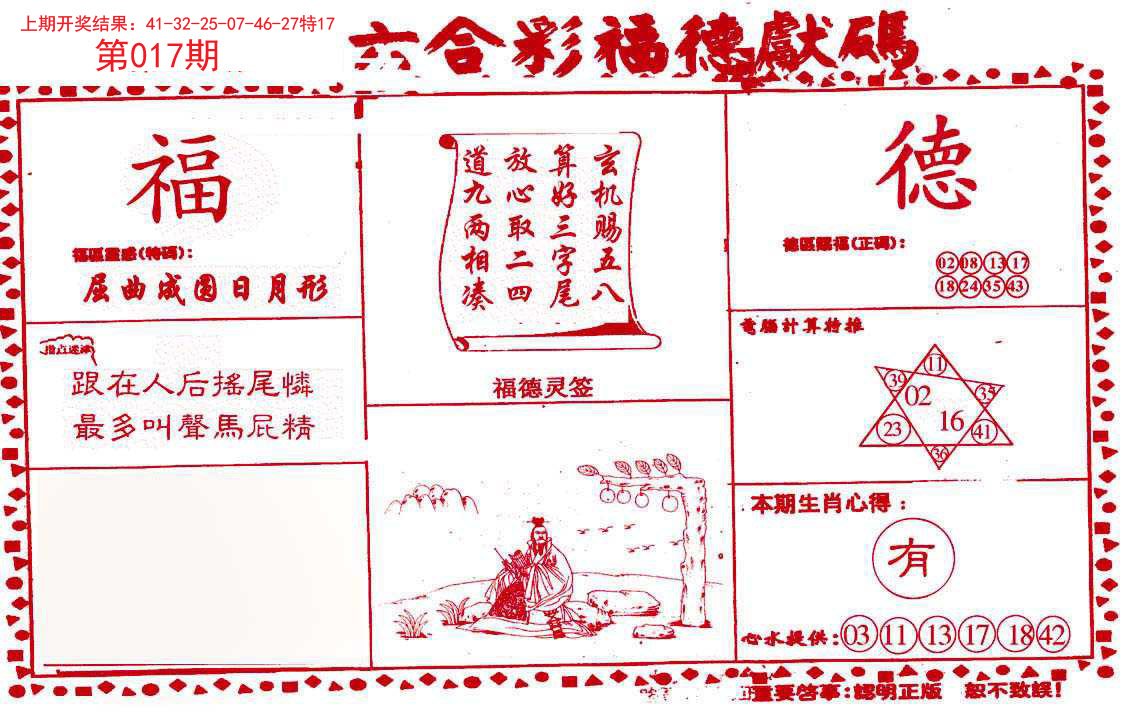 上期开奖结果：41-32-25-07-46-27特17
第017期
六合彩福德獻碼
福
福區靈感(特碼)：
屈曲成圆日月形
指点迷津
跟在人后搖尾憐
最多叫聲馬屁精
玄机赐五八
算好三字尾
放心取二四
道九两相凑
福德灵签
德
德區賜福(正碼)：
02 08 13 17
18 24 35 43
電腦計算特推
11
39 02 35
23 16 41
36
本期生肖心得：
有
心水提供：03 11 13 17 18 42
重要啓事：認明正版 恕不致誤！